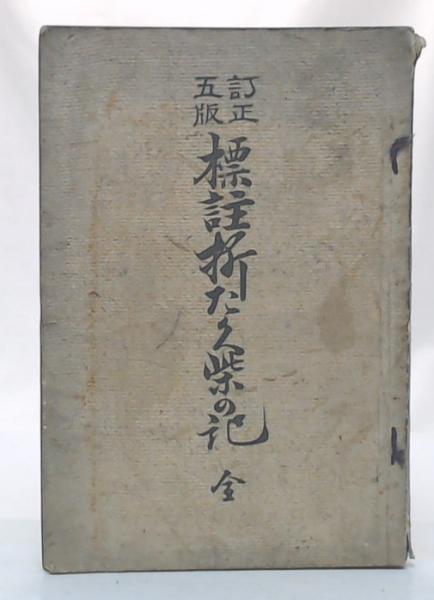 訂正
五版
標註折たく柴の記
全